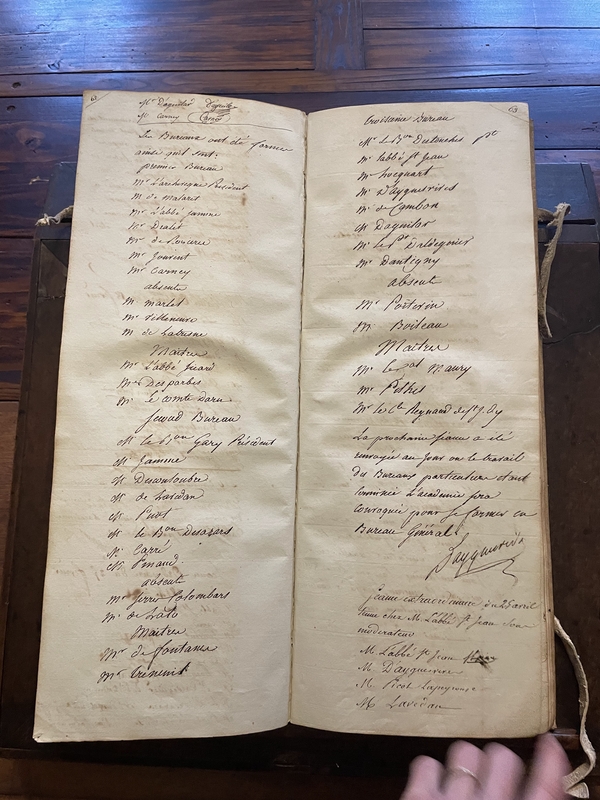 Mr D'aguilar
M. Carney
Les Bureaux ont été formés
ainsi qu'il suit.
premier Bureau
Mr L'archevêque Président
M. de Malaret
Mr L'abbé Jamme
Mr Dralet
Mr de
Mr Jouvent
Mr Carney
absents
M. Marlet
Mr Villeneuve
M. de Labresse
Maitres
Mr L'abbé Sicard
Mr Desparbes
Mr Le comte Daru
Second Bureau
Mr le Bon Gary Président
Mr Jamme
Mr Descouloubre
Mr de Lavedan
Mr Picot
Mr le Bon Desazars
Mr Carré
Mr Pinaud
absent
Mr Serres Colombars
Mr de
Maitres
Mr de fontanes
Mr Trèneuil
63
troisieme Bureau
Mr le Bon Destouches Pt
Mr l'abbé St Jean
Mr hocquart
Mr D'ayguesvives
Mr de Cambon
Mr Daguilar
Mr le Pt Daldeguier
Mr Dantigny
absents
Mr Poitevin
M. Boileau
Maitres
Mr le Cal Maury
Mr
Mr le Cte Reynaud de St J. d'y
La prochaine seance a été
renvoyée au jour ou le travail
des Bureaux particuliers etant
terminé L'académie sera
convoquée pour se former en
Bureau Général.
Dayguesvives
seance extraordinaire du 25 avril
tenue chez M. L'abbé St Jean Sous
moderateur
M. L'abbé St Jean
M. D'ayguesvives
M. Picot Lapeyrouse
M. Lavedan